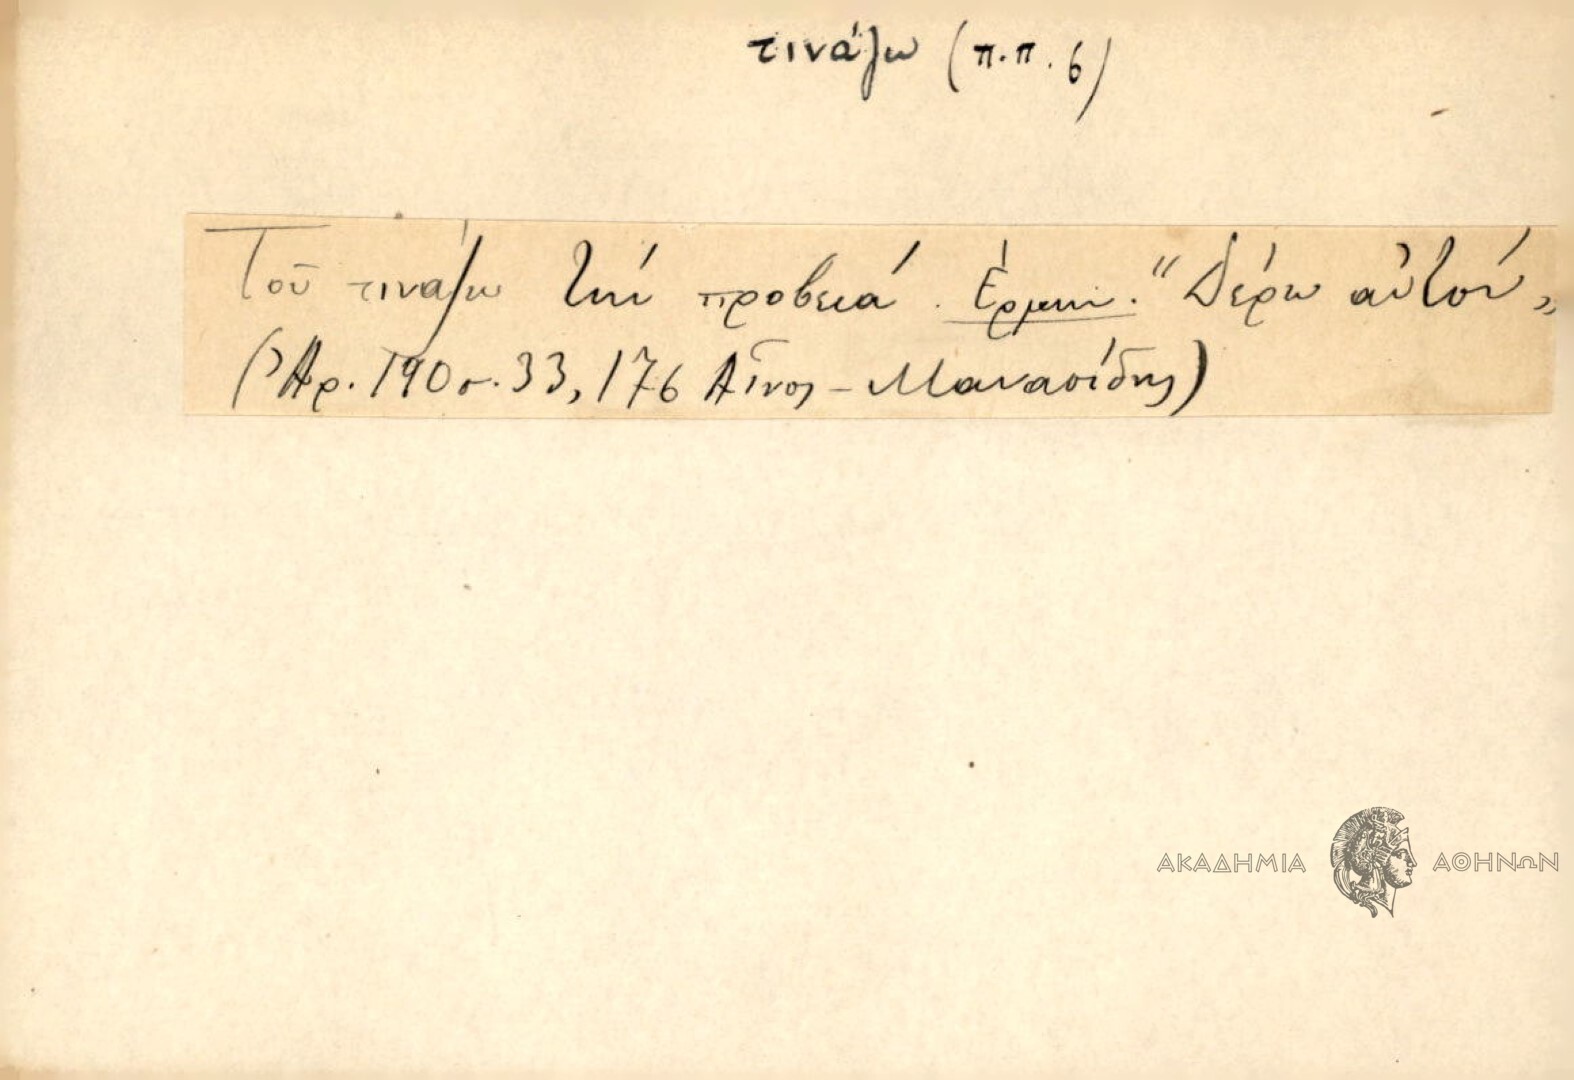 τινάζω (π.π. 6)
Τοῦ τινάζω τὴν προβειά. Ἑρμην. "Δέρω αὐτόν„
(Ἀρ. 190 σ. 33, 176 Αἶνος – Μανασίδης)
ΑΚΑΔΗΜΙΑ ΑΘΗΝΩΝ